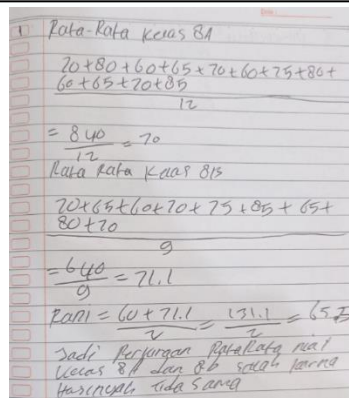 1 Rata-Rata Kelas 8A
70+80+60+65+70+60+75+80+
60+65+70+85
12
= 840
12
= 70
Rata Rata Kelas 8B
70+65+60+70+75+85+65+
80+70
9
= 640
9
= 71.1
Rani = 60+71.1
2
= 131.1
2
= 65.5
Jadi Rata Rata nial
Kelas 8A dan 8b salah karna
Hasilnyah tida sama